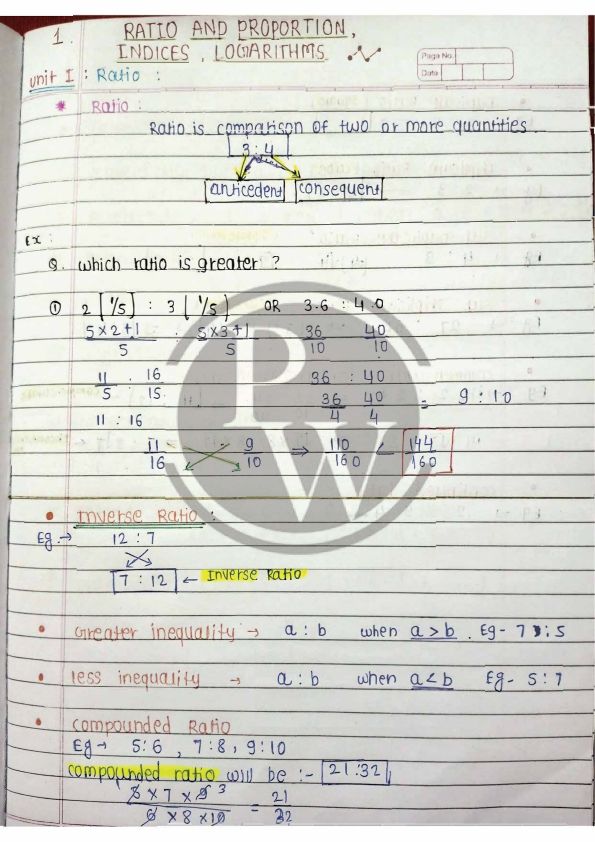 1. RATIO AND PROPORTION,
INDICES, LOGARITHMS
Page No.
Date
Unit I : Ratio :
* Ratio :
Ratio is comparison of two or more quantities.
3 : 4
anticedent consequent
Ex :
Q. which ratio is greater ?
① 2 [1/5] : 3 (1/5) OR 3.6 : 4.0
5x2+1 : 5x3+1 36 40
5 5 10 10
11 : 16 36 : 40
5 15 36 40 = 9 : 10
4 4
11 : 16
11 9 ⇒ 110 < 144
16 10 160 160
PW
• Inverse Ratio :
Eg. → 12 : 7
7 : 12 ← Inverse Ratio
• Greater inequality → a : b when a > b . Eg - 7 : 5
• less inequality → a : b when a < b Eg - 5 : 7
• compounded Ratio
Eg → 5:6 , 7:8 , 9:10
compounded ratio will be :- 21:32
5 x 7 x 9 3 = 21
6 x 8 x 10 32